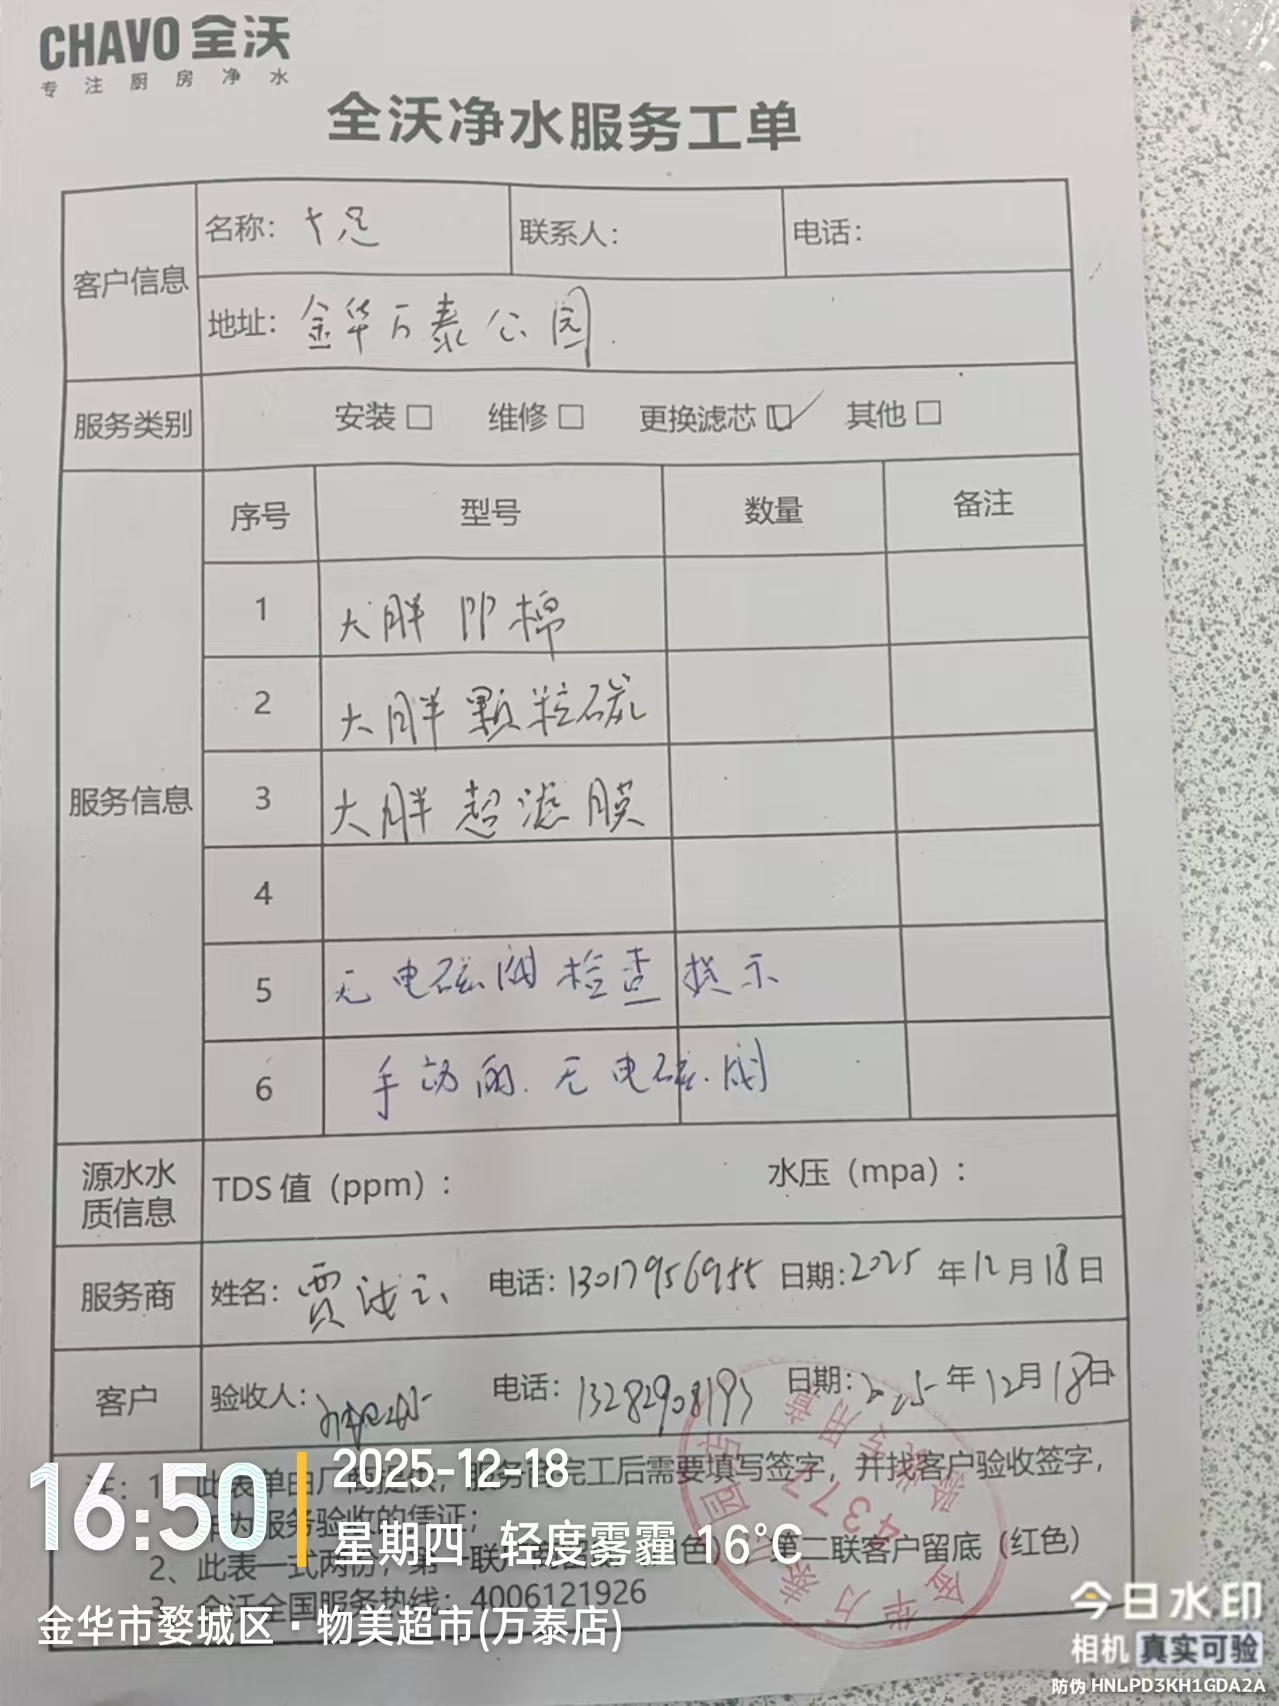 CHAVO 全沃
专注厨房净水
全沃净水服务工单
客户信息
名称：十足 联系人： 电话：
地址：金华万泰公园
服务类别 安装□ 维修□ 更换滤芯☑ 其他□
服务信息
序号 型号 数量 备注
1 大胖PP棉
2 大胖颗粒碳
3 大胖超滤膜
4
5 无电磁阀检查提示
6 手动的.无电磁阀
源水水质信息 TDS值（ppm）： 水压（mpa）：
服务商 姓名：贾 电话：13017956955 日期：2025年12月18日
客户 验收人： 电话：13282908193 日期：2025年12月18日
注：1、此表单由厂商提供，服务完工后需要填写签字，并找客户验收签字，
作为服务验收的凭证；
2、此表一式两份，第一联 色） 第二联客户留底（红色）
3、全沃全国服务热线：4006121926
金华万泰公园店
4377
验收专用章
16:50
2025-12-18
星期四 轻度雾霾 16°C
金华市婺城区·物美超市(万泰店)
今日水印
相机 真实可验
防伪 HNLPD3KH1GDA2A